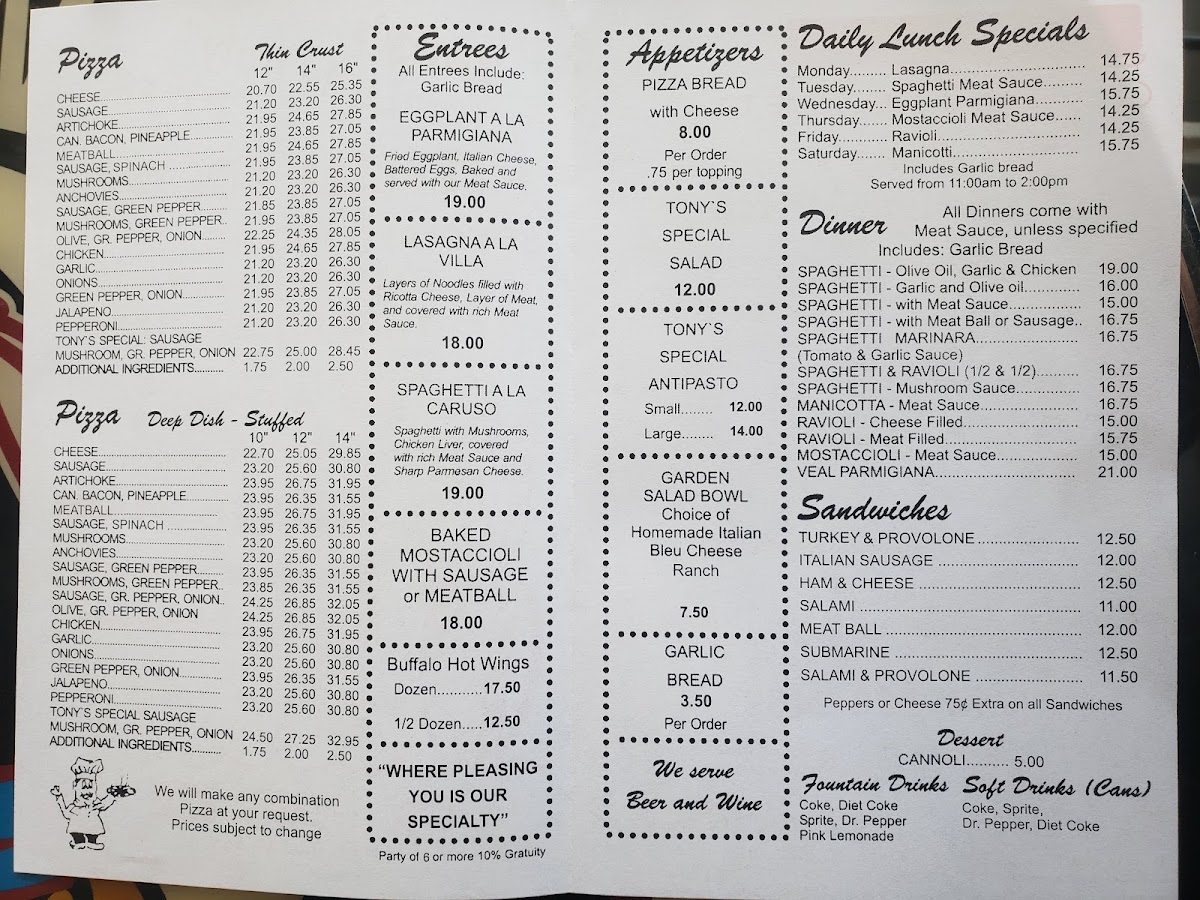 Pizza Thin Crust
12" 14" 16"
CHEESE 20.70 22.55 25.35
SAUSAGE 21.20 23.20 26.30
ARTICHOKE 21.95 24.65 27.85
CAN. BACON, PINEAPPLE 21.95 23.85 27.05
MEATBALL 21.95 24.65 27.85
SAUSAGE, SPINACH 21.95 23.85 27.05
MUSHROOMS 21.20 23.20 26.30
ANCHOVIES 21.20 23.20 26.30
SAUSAGE, GREEN PEPPER 21.85 23.85 27.05
MUSHROOMS, GREEN PEPPER 21.95 23.85 27.05
OLIVE, GR. PEPPER, ONION 22.25 24.35 28.05
CHICKEN 21.95 24.65 27.85
GARLIC 21.20 23.20 26.30
ONIONS 21.20 23.20 26.30
GREEN PEPPER, ONION 21.95 23.85 27.05
JALAPENO 21.20 23.20 26.30
PEPPERONI 21.20 23.20 26.30
TONY`S SPECIAL: SAUSAGE
MUSHROOM, GR. PEPPER, ONION 22.75 25.00 28.45
ADDITIONAL INGREDIENTS 1.75 2.00 2.50
Pizza Deep Dish - Stuffed
10" 12" 14"
CHEESE 22.70 25.05 29.85
SAUSAGE 23.20 25.60 30.80
ARTICHOKE 23.95 26.75 31.95
CAN. BACON, PINEAPPLE 23.95 26.35 31.55
MEATBALL 23.95 26.75 31.95
SAUSAGE, SPINACH 23.95 26.35 31.55
MUSHROOMS 23.20 25.60 30.80
ANCHOVIES 23.20 25.60 30.80
SAUSAGE, GREEN PEPPER 23.95 26.35 31.55
MUSHROOMS, GREEN PEPPER 23.85 26.35 31.55
SAUSAGE, GR. PEPPER, ONION 24.25 26.85 32.05
OLIVE, GR. PEPPER, ONION 24.25 26.85 32.05
CHICKEN 23.95 26.75 31.95
GARLIC 23.20 25.60 30.80
ONIONS 23.20 25.60 30.80
GREEN PEPPER, ONION 23.95 26.35 31.55
JALAPENO 23.20 25.60 30.80
PEPPERONI 23.20 25.60 30.80
TONY`S SPECIAL SAUSAGE
MUSHROOM, GR. PEPPER, ONION 24.50 27.25 32.95
ADDITIONAL INGREDIENTS 1.75 2.00 2.50
We will make any combination
Pizza at your request.
Prices subject to change
Entrees
All Entrees Include:
Garlic Bread
EGGPLANT A LA
PARMIGIANA
Fried Eggplant, Italian Cheese,
Battered Eggs, Baked and
served with our Meat Sauce.
19.00
LASAGNA A LA
VILLA
Layers of Noodles filled with
Ricotta Cheese, Layer of Meat,
and covered with rich Meat
Sauce.
18.00
SPAGHETTI A LA
CARUSO
Spaghetti with Mushrooms,
Chicken Liver, covered
with rich Meat Sauce and
Sharp Parmesan Cheese.
19.00
BAKED
MOSTACCIOLI
WITH SAUSAGE
or MEATBALL
18.00
Buffalo Hot Wings
Dozen..........17.50
1/2 Dozen.....12.50
“WHERE PLEASING
YOU IS OUR
SPECIALTY”
Party of 6 or more 10% Gratuity
Appetizers
PIZZA BREAD
with Cheese
8.00
Per Order
.75 per topping
TONY`S
SPECIAL
SALAD
12.00
TONY`S
SPECIAL
ANTIPASTO
Small........ 12.00
Large........ 14.00
GARDEN
SALAD BOWL
Choice of
Homemade Italian
Bleu Cheese
Ranch
7.50
GARLIC
BREAD
3.50
Per Order
We serve
Beer and Wine
Daily Lunch Specials
Monday......... Lasagna 14.75
Tuesday........ Spaghetti Meat Sauce 14.25
Wednesday... Eggplant Parmigiana 15.75
Thursday....... Mostaccioli Meat Sauce 14.25
Friday............ Ravioli 14.25
Saturday....... Manicotti 15.75
Includes Garlic bread
Served from 11:00am to 2:00pm
Dinner
All Dinners come with
Meat Sauce, unless specified
Includes: Garlic Bread
SPAGHETTI - Olive Oil, Garlic & Chicken 19.00
SPAGHETTI - Garlic and Olive oil 16.00
SPAGHETTI - with Meat Sauce 15.00
SPAGHETTI - with Meat Ball or Sausage.. 16.75
SPAGHETTI MARINARA 16.75
(Tomato & Garlic Sauce)
SPAGHETTI & RAVIOLI (1/2 & 1/2) 16.75
SPAGHETTI - Mushroom Sauce 16.75
MANICOTTA - Meat Sauce 16.75
RAVIOLI - Cheese Filled 15.00
RAVIOLI - Meat Filled 15.75
MOSTACCIOLI - Meat Sauce 15.00
VEAL PARMIGIANA 21.00
Sandwiches
TURKEY & PROVOLONE 12.50
ITALIAN SAUSAGE 12.00
HAM & CHEESE 12.50
SALAMI 11.00
MEAT BALL 12.00
SUBMARINE 12.50
SALAMI & PROVOLONE 11.50
Peppers or Cheese 75¢ Extra on all Sandwiches
Dessert
CANNOLI.......... 5.00
Fountain Drinks
Coke, Diet Coke
Sprite, Dr. Pepper
Pink Lemonade
Soft Drinks (Cans)
Coke, Sprite,
Dr. Pepper, Diet Coke